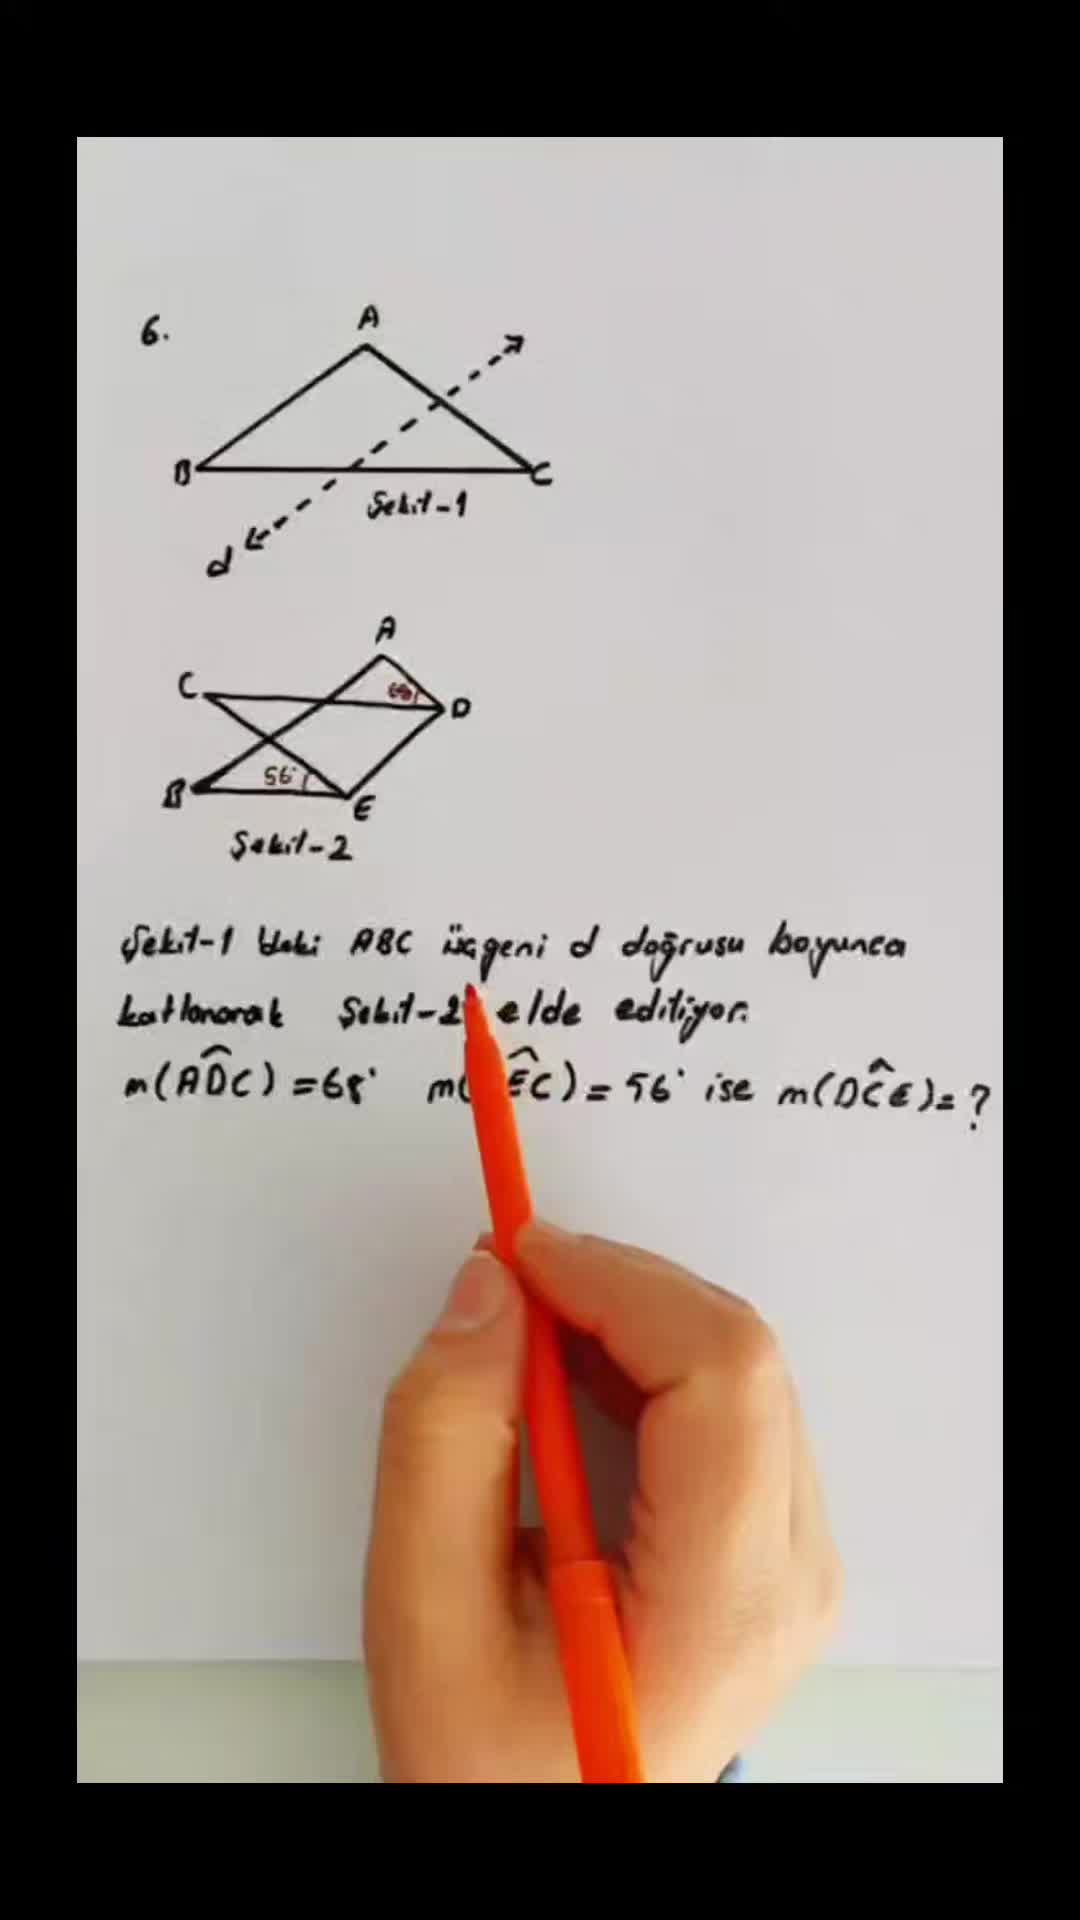 6.
A
B
C
Şekil-1
d
A
C
68
D
56°
B
E
Şekil-2
Şekil-1 deki ABC üçgeni d doğrusu boyunca
katlanarak Şekil-2 elde ediliyor.
m(ADC) = 68° m( EC) = 56° ise m(DCE) = ?